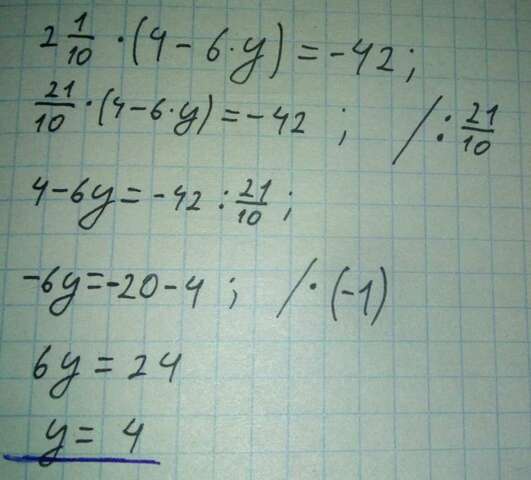 2 1/10 · (4 - 6 · y) = -42;
21/10 · (4 - 6 · y) = -42 ; / : 21/10
4 - 6y = -42 : 21/10 ;
-6y = -20 - 4 ; / · (-1)
6y = 24
y = 4